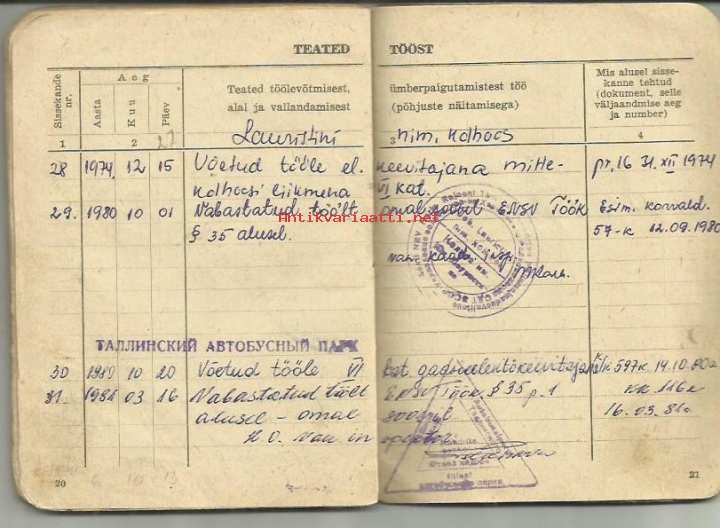 TEATED TÖÖST
Sissekande nr.
Aeg
Aasta
Kuu
Päev
Teated töölevõtmisest, ümberpaigutamistest töö
alal ja vallandamisest (põhjuste näitamisega)
Mis alusel sisse-
kanne tehtud
(dokument, selle
väljaandmise aeg
ja number)
1 2 3 4
Lauristini nim. kolhoos
28 1974 12 15 Võetud tööle el. keevitajana mitte- pr. 16 31. XII 1974
kolhoosi liikmena VI kat.
29. 1980 10 01 Vabastatud töölt omal soovil ENSV TöÖK Esim. korrald.
§ 35 alusel. 57-k 12.09.1980
ТАЛЛИНСКИЙ АВТОБУСНЫЙ ПАРК
30 1980 10 20 Võetud tööle VI kat. gaasi-elektrikeevitajana 597k 14.10.80a
31. 1981 03 16 Vabastatud töölt ENSV TöÖK § 35 p. 1 KK 116a
alusel - omal soovil 16.03.81a
20 21
antikvariaatti.net